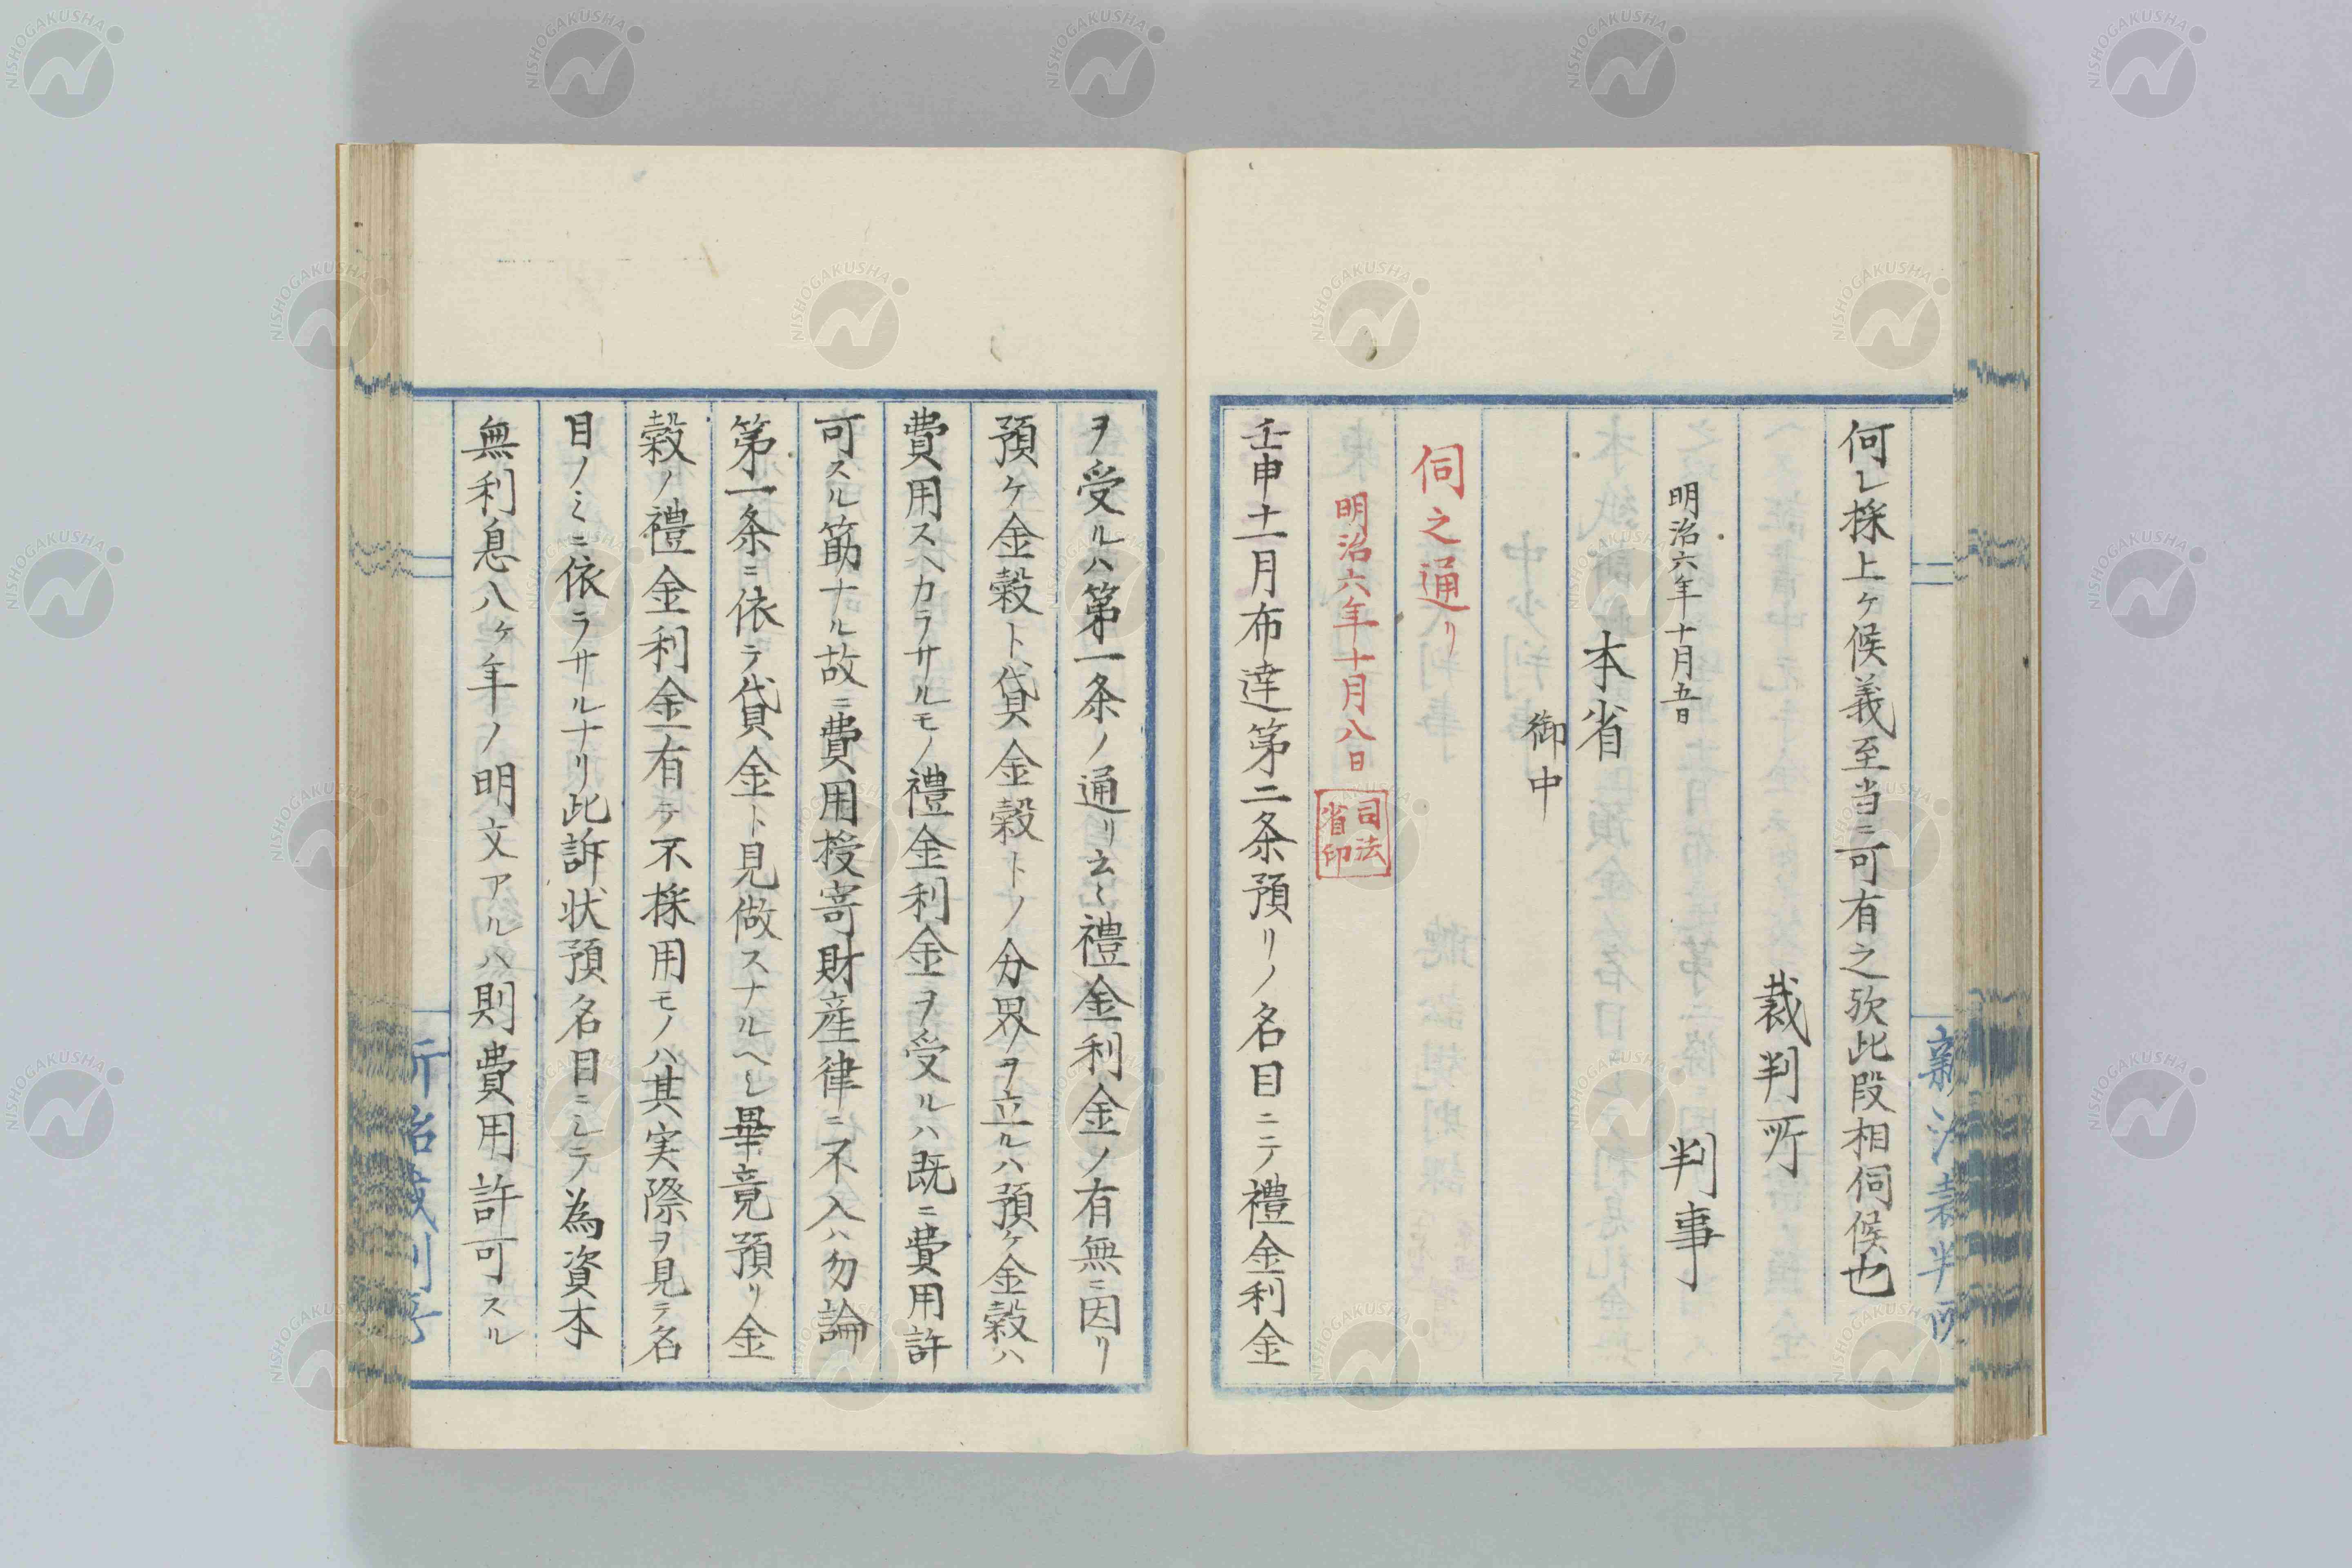 何レ採上ケ候義至当ニ可有之欤此段相伺候也
裁判所
明治六年十月五日
判事
本省
御中
伺之通リ
明治六年十月八日
司法
省印
壬申十一月布達第二条預リノ名目ニテ禮金利金
ヲ受ルハ第一条ノ通リ云々禮金利金ノ有無ニ因リ
預ケ金穀ト貸金穀トノ分界ヲ立ルハ預ケ金穀ハ
費用スヘカラサルモノ禮金利金ヲ受ルハ既ニ費用許
可スル筋ナル故ニ費用授寄財産律ニ不入ハ勿論
第一条ニ依ラテ貸金ト見做スナルヘシ畢竟預リ金
穀ノ禮金利金有テ不採用モノハ其実際ヲ見テ名
目ノミニ依ラサルナリ此訴状預名目ニシテ為資本
無利息八ケ年ノ明文アルハ則費用許可スル
新治裁判所